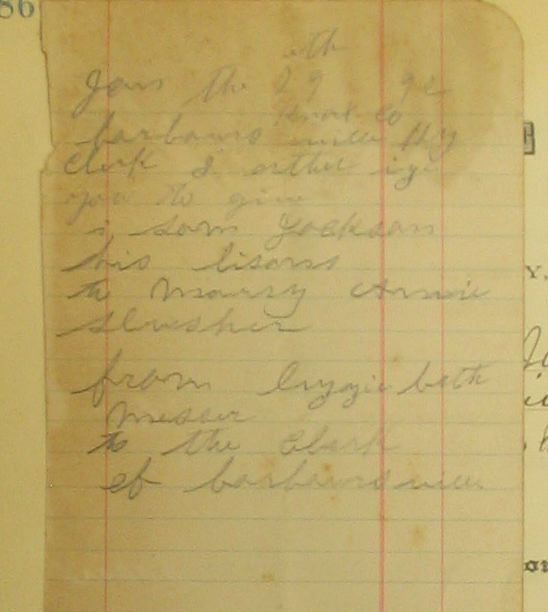 86
th
Jan the 29 92
Knox Co
barbours ville Ky
clerk I orther ize
you to give
i sam Jackson
his lisons
to Maury Annie
slusher
from lizzie beth
Messer
to the Clark
of barboursville
Y.